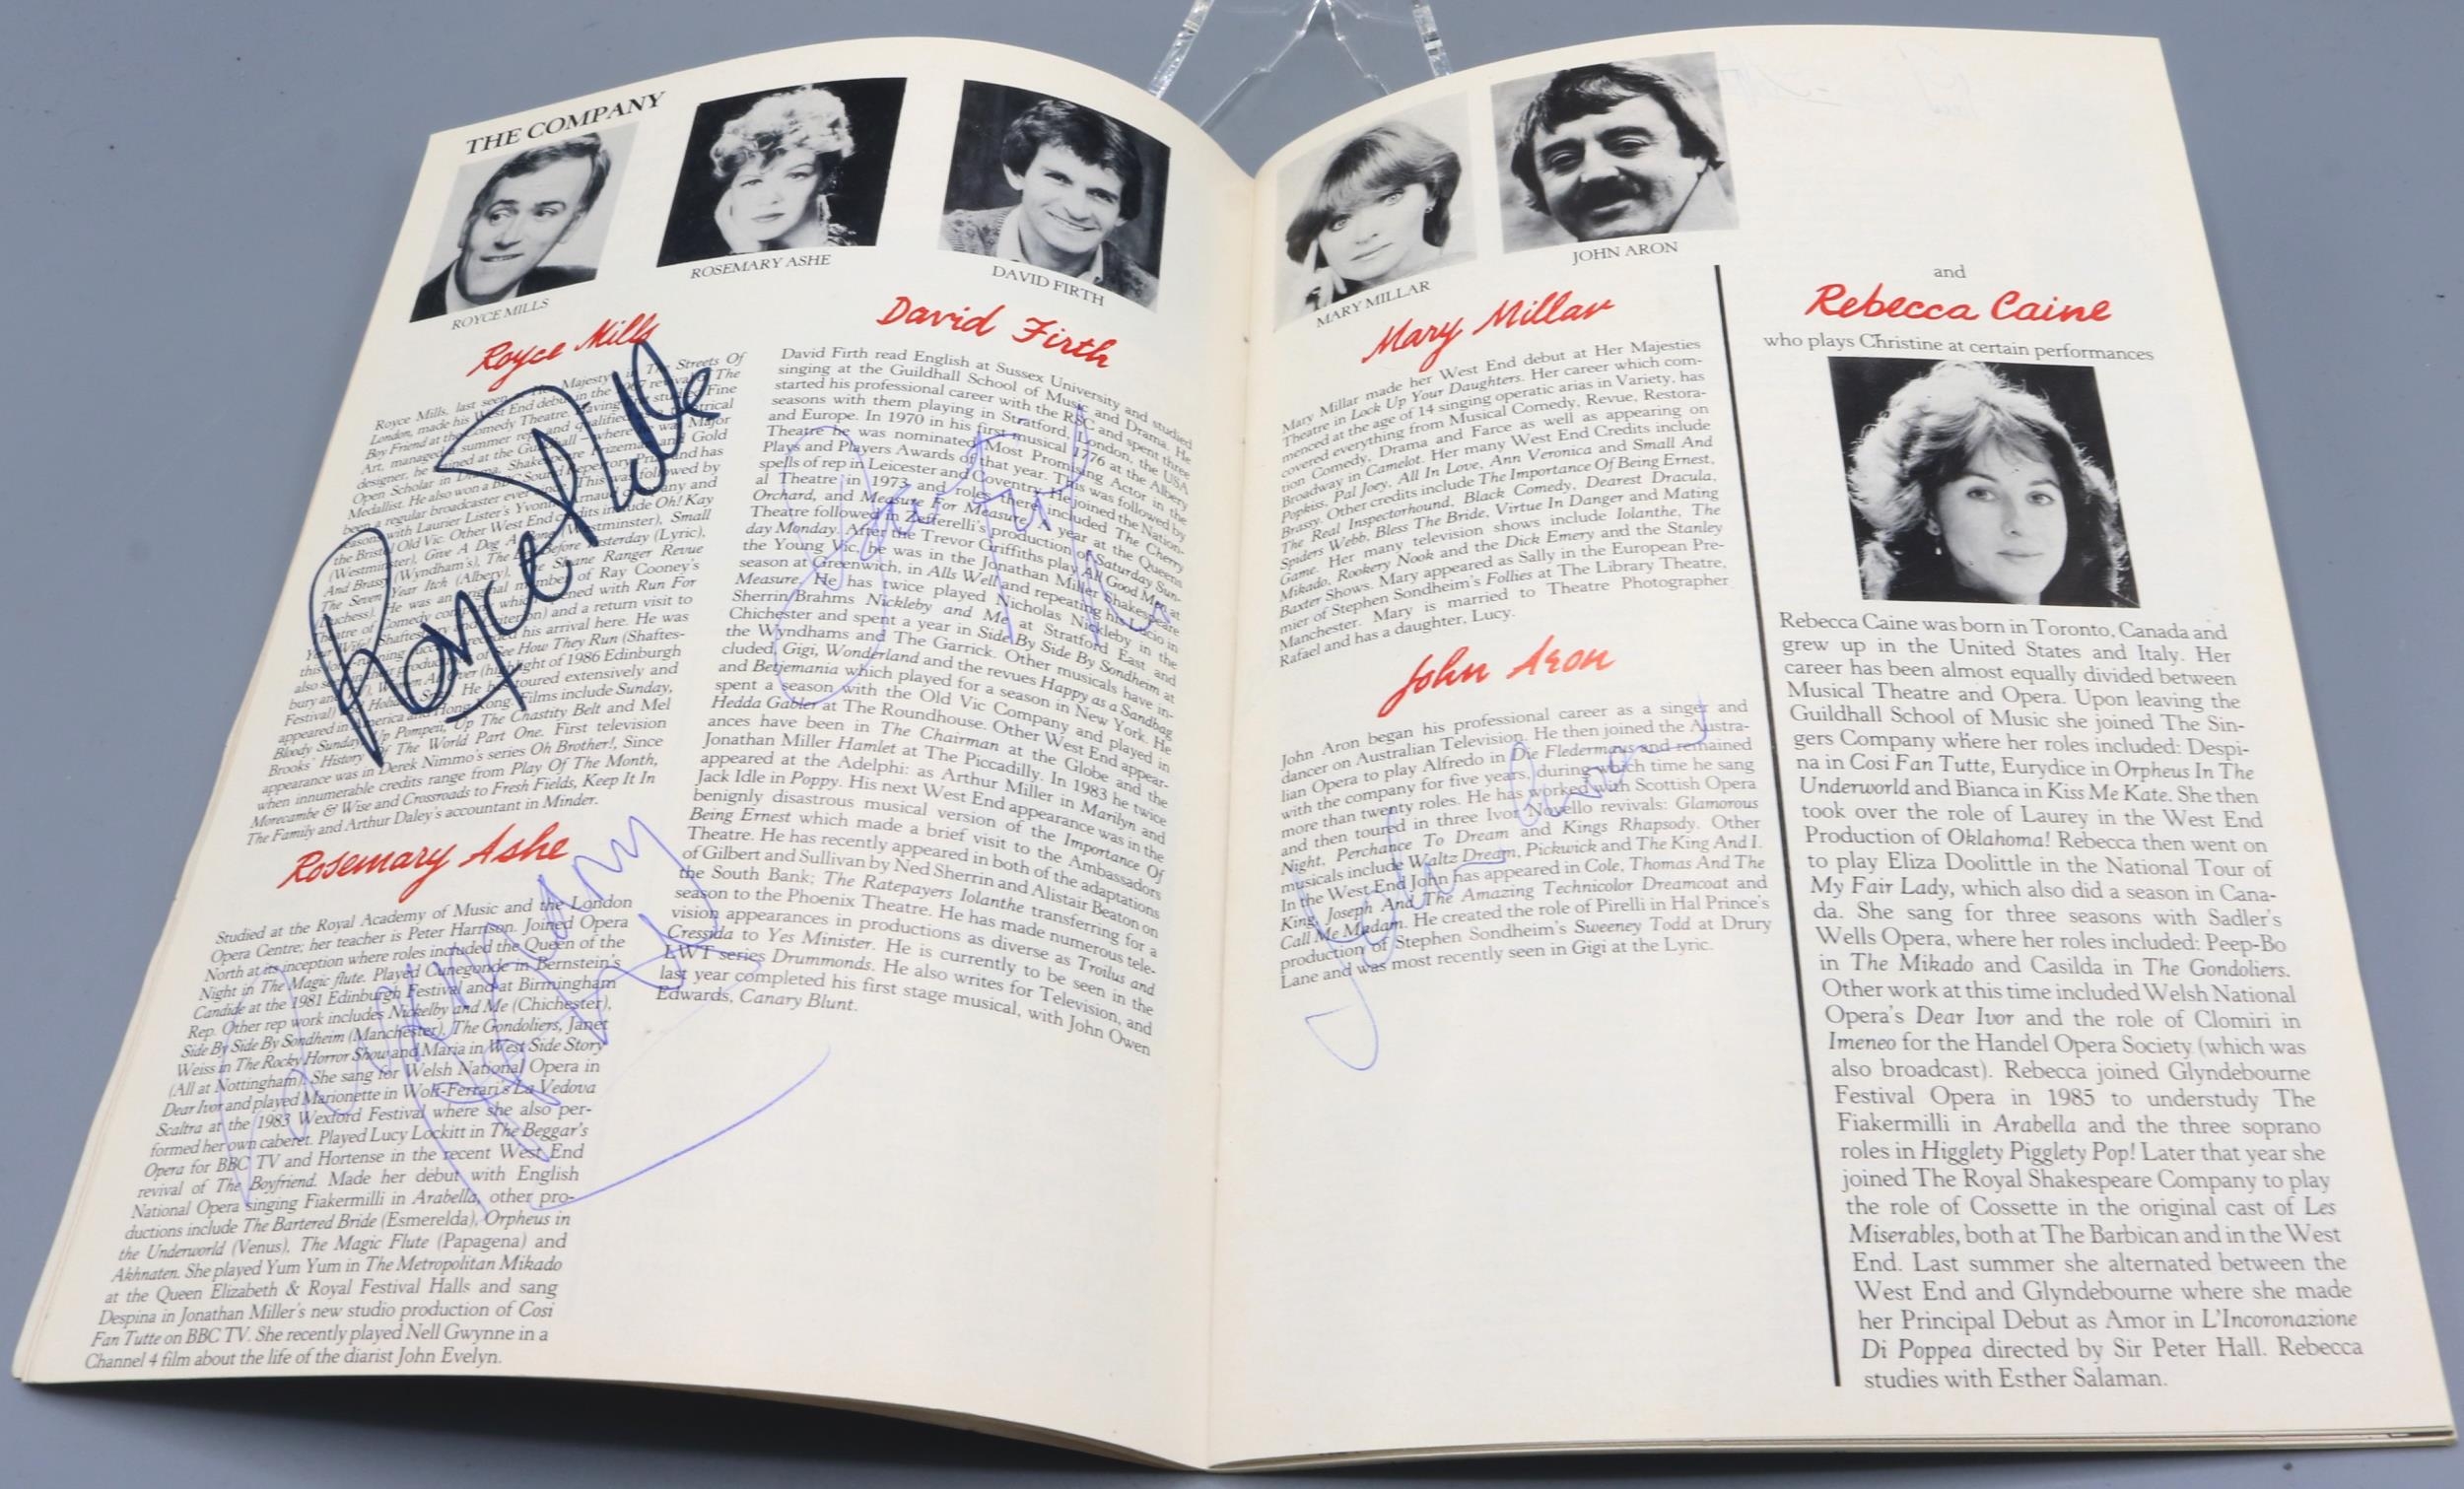 THE COMPANY
ROYCE MILLS
ROSEMARY ASHE
DAVID FIRTH
Royce Mills
Royce Mills, last seen Her Majesty's in The Streets Of
London, made his West End debut in the 1967 revival of The
Boy Friend at the Comedy Theatre. Having first studied Fine
Art, managed a summer rep and qualified theatrical
designer, he trained at the Guildhall – where he was Major
Open Scholar in Drama, Shakespeare Prizeman and Gold
Medallist. He also won a BBC Sound Repertory Prize and has
been a regular broadcaster ever since. This was followed by
seasons with Laurier Lister's Yvonne Arnaud company and
the Bristol Old Vic. Other West End credits include Oh! Kay
(Westminster), Give A Dog A Bone (Westminster), Small
And Brassy (Wyndham's), The Day Before Yesterday (Lyric),
The Seven Year Itch (Albery), The Sloane Ranger Revue
(Duchess). He was an original member of Ray Cooney's
Theatre of Comedy company which opened with Run For
Your Wife (Shaftesbury and Criterion) and a return visit to
this long-running success preceded his arrival here. He was
also seen in their production of See How They Run (Shaftes-
bury and Women All Over (highlight of 1986 Edinburgh
Festival) and Holiday Snap. He has toured extensively and
appeared in America and Hong Kong. Films include Sunday,
Bloody Sunday, Up Pompeii, Up The Chastity Belt and Mel
Brooks' History Of The World Part One. First television
appearance was in Derek Nimmo's series Oh Brother!, Since
when innumerable credits range from Play Of The Month,
Morecambe & Wise and Crossroads to Fresh Fields, Keep It In
The Family and Arthur Daley's accountant in Minder.
Royce Mills
Rosemary Ashe
Studied at the Royal Academy of Music and the London
Opera Centre; her teacher is Peter Harrison. Joined Opera
North at its inception where roles included the Queen of the
Night in The Magic flute. Played Cunegonde in Bernstein's
Candide at the 1981 Edinburgh Festival and at Birmingham
Rep. Other rep work includes Nickelby and Me (Chichester),
Side By Side By Sondheim (Manchester), The Gondoliers, Janet
Weiss in The Rocky Horror Show and Maria in West Side Story
(All at Nottingham). She sang for Welsh National Opera in
Dear Ivor and played Marionette in Wolf-Ferrari's La Vedova
Scaltra at the 1983 Wexford Festival where she also per-
formed her own caberet. Played Lucy Lockitt in The Beggar's
Opera for BBC TV and Hortense in the recent West End
revival of The Boyfriend. Made her debut with English
National Opera singing Fiakermilli in Arabella, other pro-
ductions include The Bartered Bride (Esmerelda), Orpheus in
the Underworld (Venus), The Magic Flute (Papagena) and
Akhnaten. She played Yum Yum in The Metropolitan Mikado
at the Queen Elizabeth & Royal Festival Halls and sang
Despina in Jonathan Miller's new studio production of Cosi
Fan Tutte on BBC TV. She recently played Nell Gwynne in a
Channel 4 film about the life of the diarist John Evelyn.
Rosemary Ashe
David Firth
David Firth read English at Sussex University and studied
singing at the Guildhall School of Music and Drama. He
started his professional career with the RSC and spent three
seasons with them playing in Stratford, London, the USA
and Europe. In 1970 in his first musical 1776 at the Albery
Theatre he was nominated Most Promising Actor in the
Plays and Players Awards of that year. This was followed by
spells of rep in Leicester and Coventry. He joined the Nation-
al Theatre in 1973 and roles there included The Cherry
Orchard, and Measure For Measure. A year at the Queens
Theatre followed in Zefferelli's production of Saturday Sun-
day Monday. After the Trevor Griffiths play All Good Men at
the Young Vic, he was in the Jonathan Miller Shakespeare
season at Greenwich, in Alls Well and repeating his Lucio in
Measure. He has twice played Nicholas Nickleby in the
Sherrin/Brahms Nickleby and Me at Stratford East and
Chichester and spent a year in Side By Side By Sondheim at
the Wyndhams and The Garrick. Other musicals have in-
cluded, Gigi, Wonderland and the revues Happy as a Sandbag
and Betjemania which played for a season in New York. He
spent a season with the Old Vic Company and played in
Hedda Gabler at The Roundhouse. Other West End appear-
ances have been in The Chairman at the Globe and the
Jonathan Miller Hamlet at The Piccadilly. In 1983 he twice
appeared at the Adelphi: as Arthur Miller in Marilyn and
Jack Idle in Poppy. His next West End appearance was in the
benignly disastrous musical version of the Importance Of
Being Ernest which made a brief visit to the Ambassadors
Theatre. He has recently appeared in both of the adaptations
of Gilbert and Sullivan by Ned Sherrin and Alistair Beaton on
the South Bank; The Ratepayers Iolanthe transferring for a
season to the Phoenix Theatre. He has made numerous tele-
vision appearances in productions as diverse as Troilus and
Cressida to Yes Minister. He is currently to be seen in the
LWT series Drummonds. He also writes for Television, and
last year completed his first stage musical, with John Owen
Edwards, Canary Blunt.
MARY MILLAR
JOHN ARON
Mary Millar
Mary Millar made her West End debut at Her Majesties
Theatre in Lock Up Your Daughters. Her career which com-
menced at the age of 14 singing operatic arias in Variety, has
covered everything from Musical Comedy, Revue, Restora-
tion Comedy, Drama and Farce as well as appearing on
Broadway in Camelot. Her many West End Credits include
Popkiss, Pal Joey, All In Love, Ann Veronica and Small And
Brassy. Other credits include The Importance Of Being Ernest,
The Real Inspectorhound, Black Comedy, Dearest Dracula,
Spiders Webb, Bless The Bride, Virtue In Danger and Mating
Game. Her many television shows include Iolanthe, The
Mikado, Rookery Nook and the Dick Emery and the Stanley
Baxter Shows. Mary appeared as Sally in the European Pre-
mier of Stephen Sondheim's Follies at The Library Theatre,
Manchester. Mary is married to Theatre Photographer
Rafael and has a daughter, Lucy.
John Aron
John Aron began his professional career as a singer and
dancer on Australian Television. He then joined the Austra-
lian Opera to play Alfredo in Die Fledermaus and remained
with the company for five years, during which time he sang
more than twenty roles. He has worked with Scottish Opera
and then toured in three Ivor Novello revivals: Glamorous
Night, Perchance To Dream and Kings Rhapsody. Other
musicals include Waltz Dream, Pickwick and The King And I.
In the West End John has appeared in Cole, Thomas And The
King, Joseph And The Amazing Technicolor Dreamcoat and
Call Me Madam. He created the role of Pirelli in Hal Prince's
production of Stephen Sondheim's Sweeney Todd at Drury
Lane and was most recently seen in Gigi at the Lyric.
John Aron
and
Rebecca Caine
who plays Christine at certain performances
Rebecca Caine was born in Toronto, Canada and
grew up in the United States and Italy. Her
career has been almost equally divided between
Musical Theatre and Opera. Upon leaving the
Guildhall School of Music she joined The Sin-
gers Company where her roles included: Despi-
na in Cosi Fan Tutte, Eurydice in Orpheus In The
Underworld and Bianca in Kiss Me Kate. She then
took over the role of Laurey in the West End
Production of Oklahoma! Rebecca then went on
to play Eliza Doolittle in the National Tour of
My Fair Lady, which also did a season in Cana-
da. She sang for three seasons with Sadler's
Wells Opera, where her roles included: Peep-Bo
in The Mikado and Casilda in The Gondoliers.
Other work at this time included Welsh National
Opera's Dear Ivor and the role of Clomiri in
Imeneo for the Handel Opera Society (which was
also broadcast). Rebecca joined Glyndebourne
Festival Opera in 1985 to understudy The
Fiakermilli in Arabella and the three soprano
roles in Higglety Pigglety Pop! Later that year she
joined The Royal Shakespeare Company to play
the role of Cossette in the original cast of Les
Miserables, both at The Barbican and in the West
End. Last summer she alternated between the
West End and Glyndebourne where she made
her Principal Debut as Amor in L'Incoronazione
Di Poppea directed by Sir Peter Hall. Rebecca
studies with Esther Salaman.